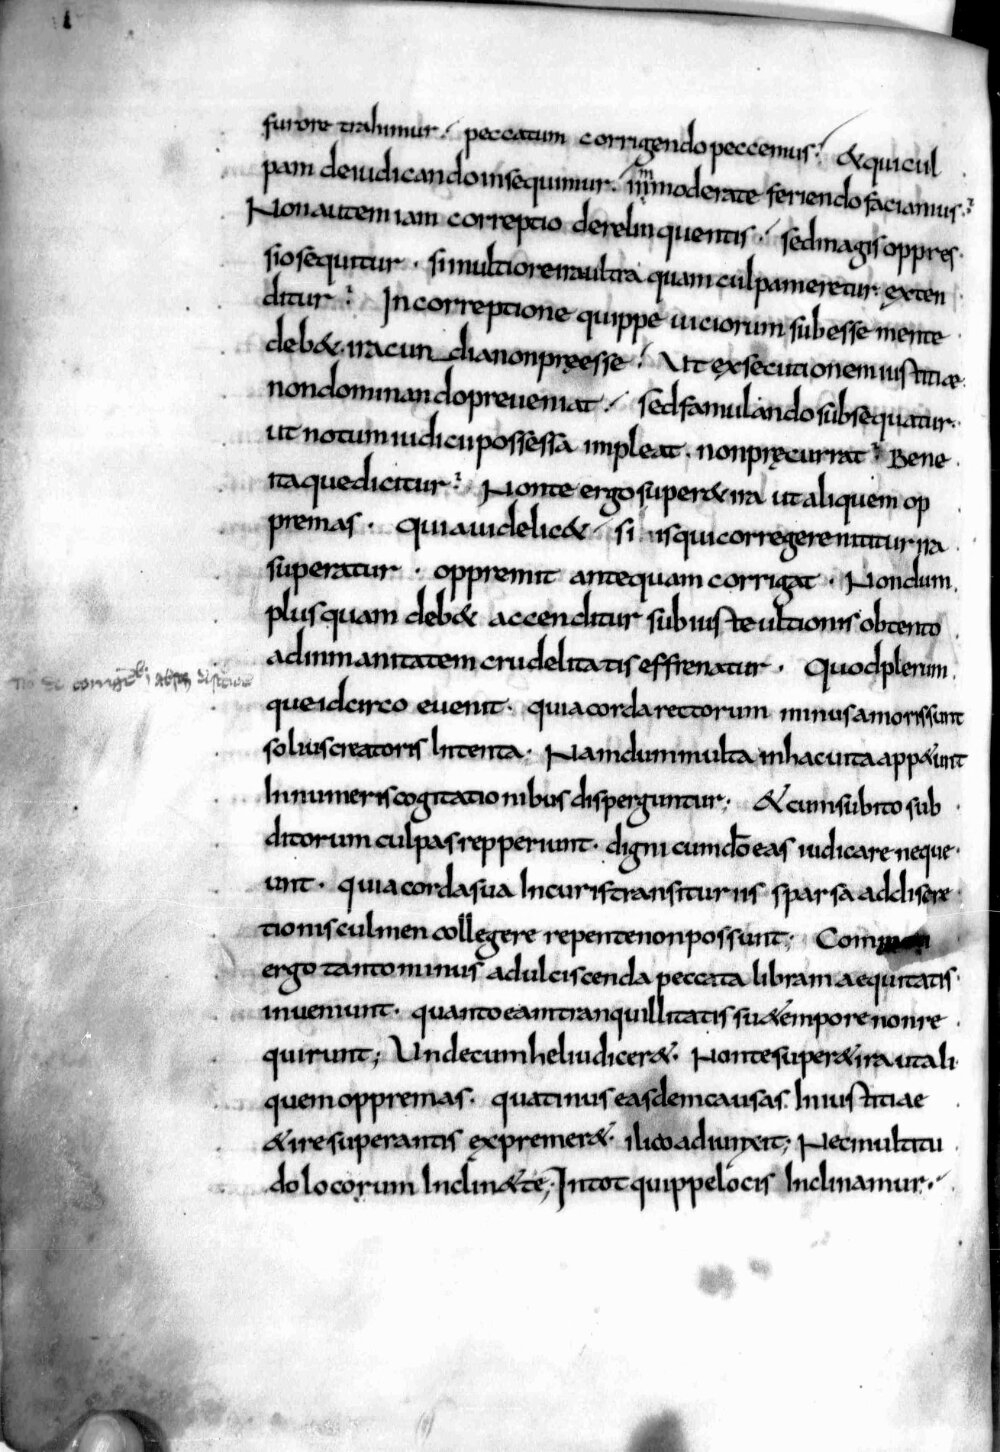 furore trahimur. peccatum corrigendo peccemus. & qui cul
pam deiudicando insequimur. immoderate feriendo faciamus.
Non autem iam correptio derelinquentis. sed magis oppres
sio sequitur. si in ultione ira ultra quam culpa meretur exten
ditur. In correptione quippe uiciorum subesse mente
deb& iracundia non pręesse. Ut exsecutionem iustitiae
non dominando preueniat. sed famulando subsequatur.
ut notum iudicii possessa impleat. non pręcurrat. Bene
itaque dicitur. Non te ergo super& ira ut aliquem op
premas. Quia uidelic& si is qui corregere nititur ira
superatur. oppremit antequam corrigat. Nondum
plus quam deb& accenditur sub iuste ultionis obtento
ad inmanitatem crudelitatis effrenatur. Quod plerum
que idcirco euenit. quia corda rectorum minus amori sunt
solius creatoris Intenta. Nam dum multa in hac uita app&unt
Innumeris cogitationibus disperguntur; & cum subito sub
ditorum culpas repperiunt. digni cum dō eas iudicare neque
unt. quia corda sua In curis transituriis sparsa ad discre
tionis culmen collegere repente non possunt;
ergo tanto minus ad ulciscenda peccata libram aequitatis
inueniunt. quanto eam tranquillitatis suę tempore non re
quirunt; Unde cum heliu dicer&. Non te super& ira ut ali
quem oppremas. quatinus easdem causas Iniustitiae
& ire superantis expremer&. ilico adiunxit; Nec multitu
do locorum Inclin& te; In tot quippe locis Inclinamur.